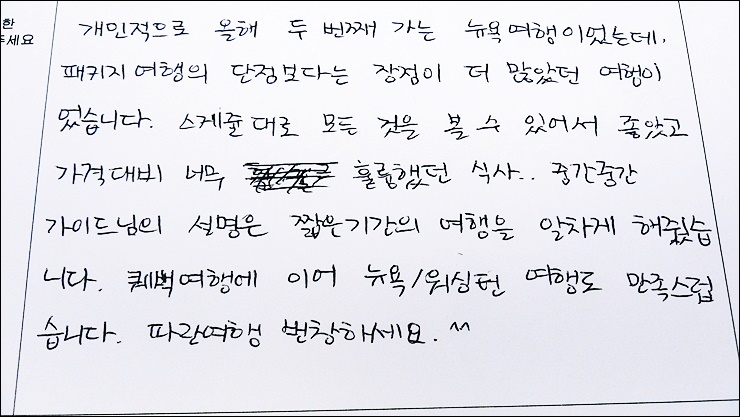 한
주세요
개인적으로 올해 두번째 가는 뉴욕여행이었는데,
패키지여행의 단점보다는 장점이 더 많았던 여행이
었습니다. 스케쥴대로 모든 것을 볼 수 있어서 좋았고
가격대비 너무 훌륭했던 식사.. 중간중간
가이드님의 설명은 짧은기간의 여행을 알차게 해줬습
니다. 퀘벡여행에 이어 뉴욕/워싱턴 여행도 만족스럽
습니다. 파란여행 번창하세요. ^^